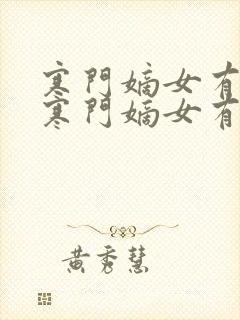 寒門嫡女有
寒門嫡女有
黄秀慧